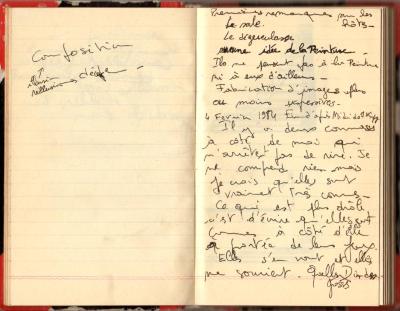 Composition
illusion
réflexions, désir
Premières remarques sur les
Le sale.
Le dégueulasse
idée de la Peinture
Ils ne pensent pas à la Peinture
ni à eux d'ailleurs -
Fabrication d'images plus
ou moins expressives -
4 Février 1984
Il y a deux connasses
à côté de moi qui
n'arrêtent pas de rire. Je
ne comprend rien mais
je vois qu'elles sont
vraiment très connes -
Ce qui est plus drôle
c'est d'écrire qu'elles sont
connes à côté d'elle
à portée de leur yeux.
Elles s'en vont et elles
me sourient. Quelles